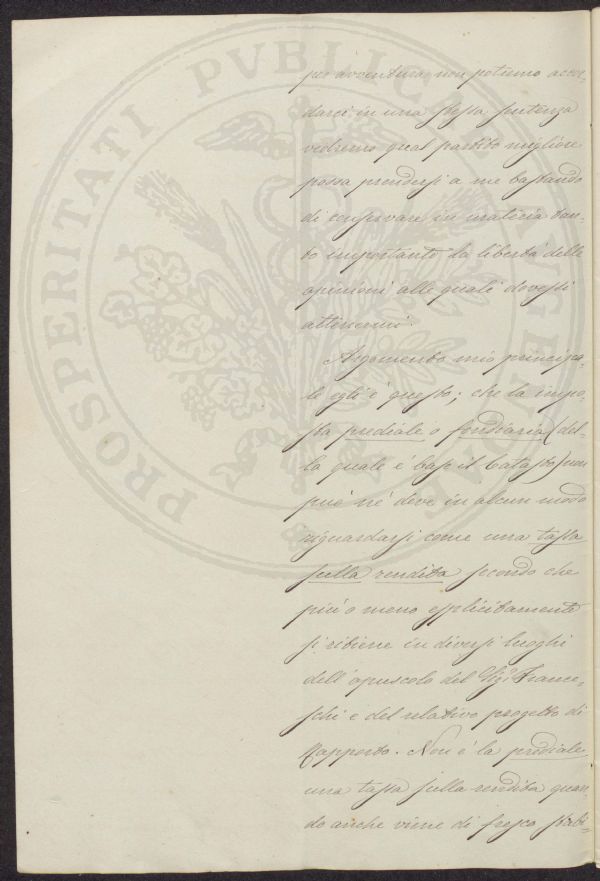 PROSPERITATI PVBLICAE AVGENDAE
per avventura non potremo accor-
darci in una stessa sentenza
vedremo qual partito migliore
possa prendersi a me bastando
di conservare in materia tan-
to importante la libertà delle
opinioni alle quali dovessi
attenermi.
Argomento mio principa-
le egli è questo; che la impo-
sta prediale o fondiaria (del-
la quale è base il Catasto) non
può nè deve in alcun modo
riguardarsi come una tassa
sulla rendita secondo che
più o meno esplicitamente
si ritiene in diversi luoghi
dell'opuscolo del Sigr. France-
schi e del relativo progetto di
Rapporto. Non è la prediale
una tassa sulla rendita quan-
do anche viene di fresco stabi-